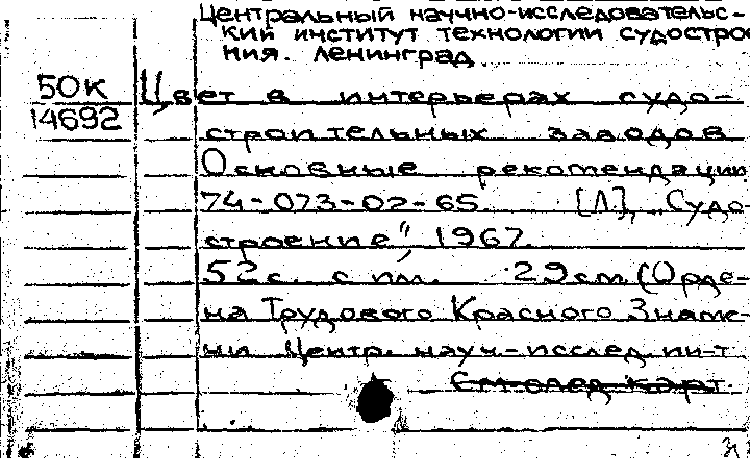 Центральный научно-исследовательс-
кий институт технологии судострое
ния. Ленинград
50к Цвет в интерьерах судо-
14692 строительных заводов
Основные рекомендации
74-073-02-65. [Л], „Судо-
строение", 1967.
52с. с илл. 29см (Орде-
на Трудового Красного Знаме-
ни Центр. науч.-исслед. ин-т
См. след. карт.